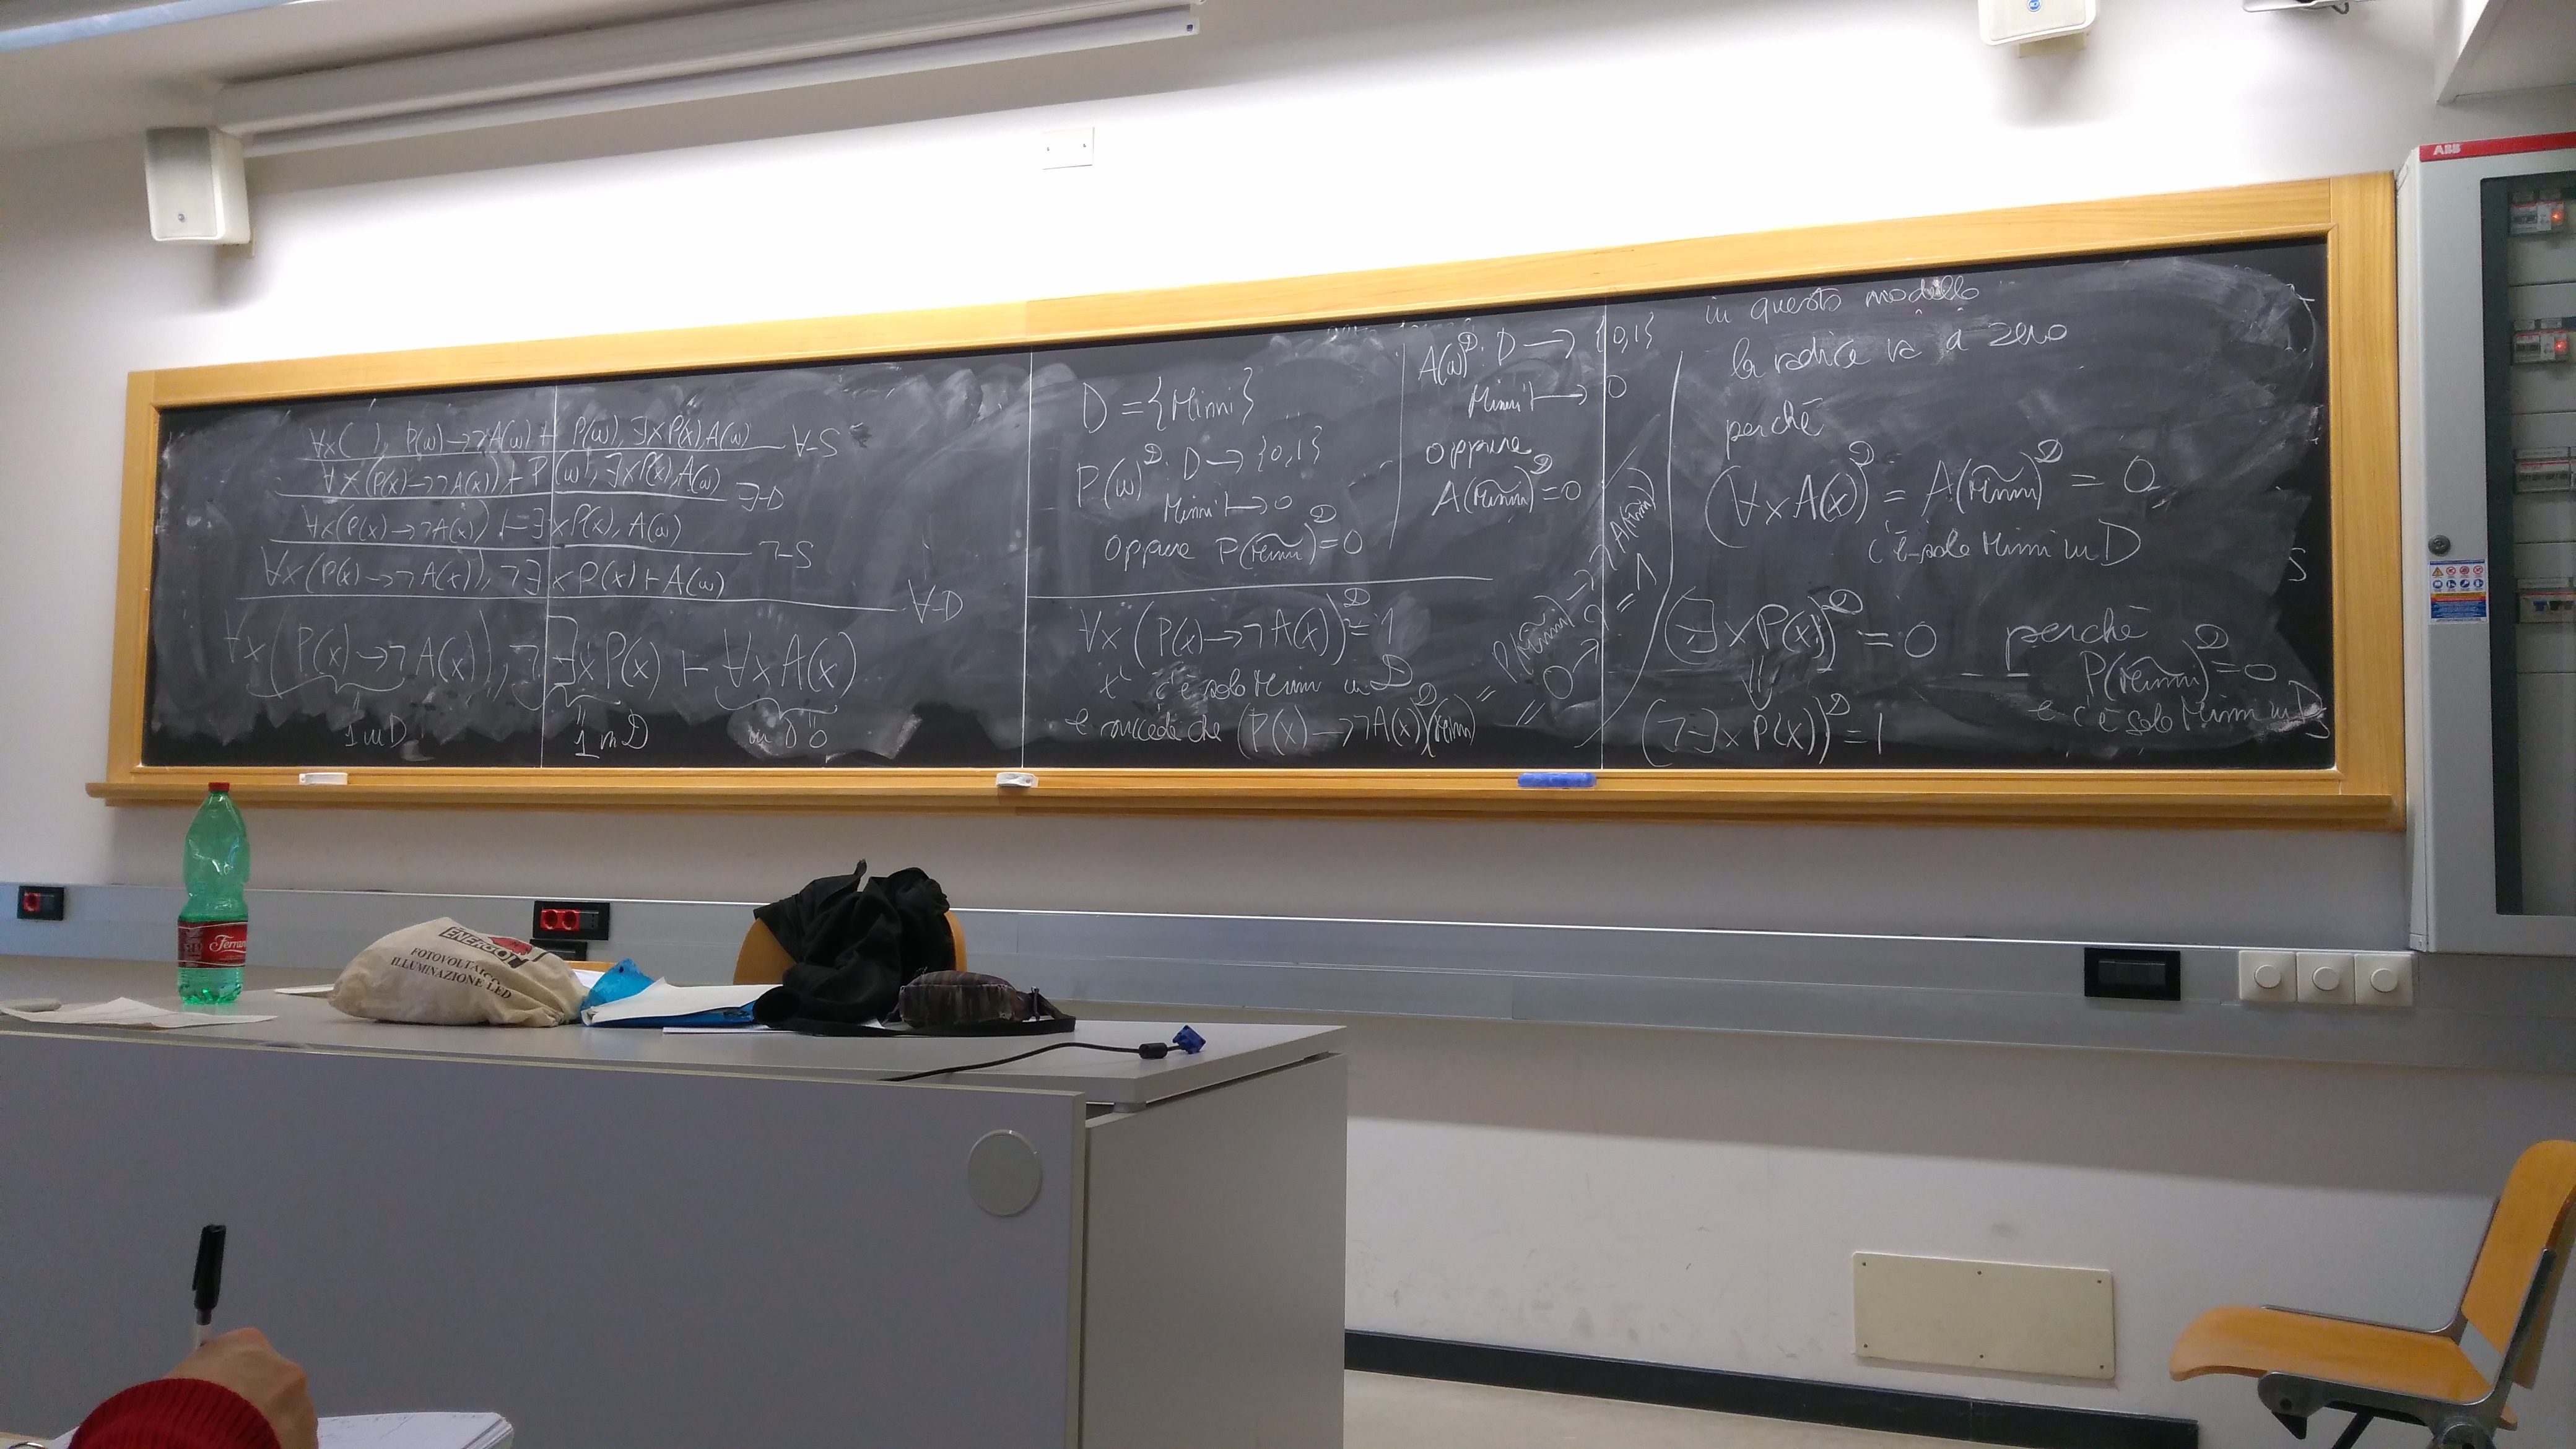 ∀x( ), P(w)→¬A(w) ⊢ P(w), ∃xP(x), A(w) ∀-S
∀x(P(x)→¬A(x)) ⊢ P(w), ∃xP(x), A(w) ∃-D
∀x(P(x)→¬A(x)) ⊢ ∃xP(x), A(w) ¬-S
∀x(P(x)→¬A(x)), ¬∃xP(x) ⊢ A(w) ∀-D
∀x(P(x)→¬A(x)), ¬∃xP(x) ⊢ ∀xA(x)
1 in D 1 in D in D 0
D = {Minni}
P(w)^D: D → {0,1}
Minni ↦ 0
oppure P(Minni)^D = 0
A(w)^D: D → {0,1}
Minni ↦ 0
oppure
A(Minni)^D = 0
∀x(P(x)→¬A(x))^D = 1
c'è solo Minni in D
e succede che (P(x)→¬A(x))^D(Minni) =
P(Minni)→¬A(Minni)
= 0→ = 1
in questo modello
la radice va a zero
perché
(∀xA(x))^D = A(Minni)^D = 0
c'è solo Minni in D
(∃xP(x))^D = 0 perché
P(Minni)^D = 0
e c'è solo Minni in D
⇓
(¬∃xP(x))^D = 1
ABB
ENERGION
FOTOVOLTAICO
ILLUMINAZIONE LED